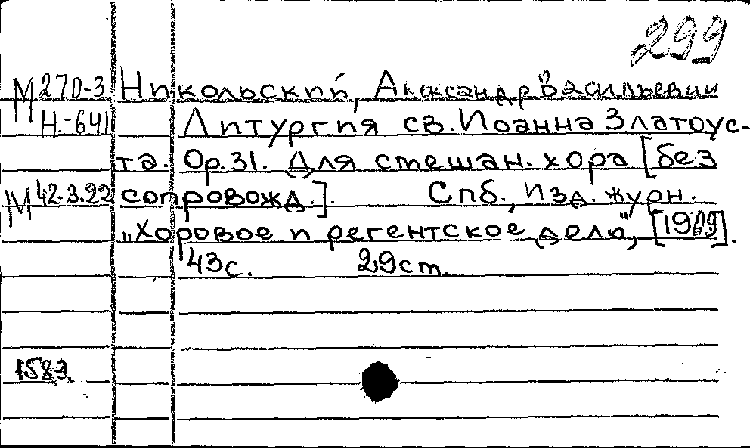 299
М 270-3 Никольский, Александр Васильевич
Н-641 Литургия св. Иоанна Златоус-
та. Op.31. Для смешан. хора [без
М 42-3.22 сопровожд.] Спб., Изд. журн.
"Хоровое и регентское дело", [1909].
43с. 29см.